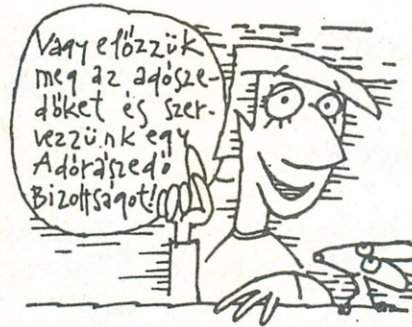 Vagy előzzük
meg az adósze-
dőket és szer-
vezzünk egy
Adórászedő
Bizottságot!